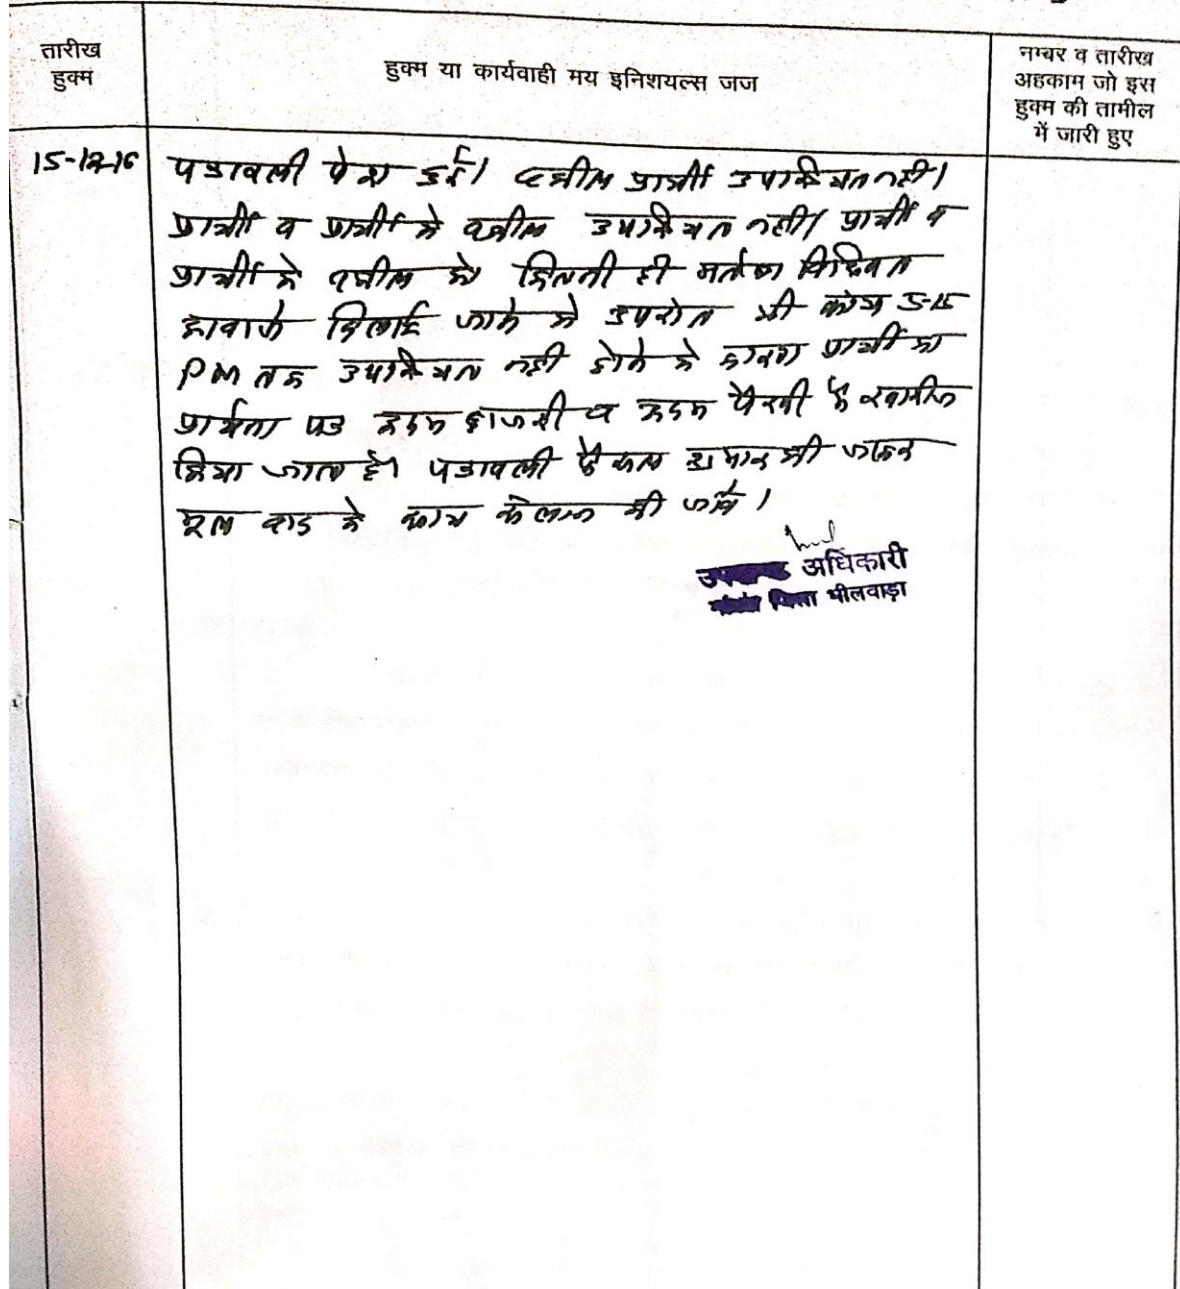 तारीख
हुक्म
हुक्म या कार्यवाही मय इनिशयल्स जज
नम्बर व तारीख
अहकाम जो इस
हुक्म की तामील
में जारी हुए
15-12-16
पत्रावली पेश हुई। वकील प्रार्थी उपस्थित नही।
प्रार्थी व प्रार्थी के वकील उपस्थित नही। प्रार्थी व
प्रार्थी के वकील को कितनी ही मर्तबा विधिवत
आवाजे दिलाई जाने के उपरांत भी 5-15
PM तक उपस्थित नही होने के कारण प्रार्थी का
प्रार्थना पत्र अदम हाजरी व अदम पैरवी मे खारीज
किया जाता है। पत्रावली फैसल शुमार की जाकर
मूल वाद के साथ की जावे।
अधिकारी
जिला भीलवाड़ा